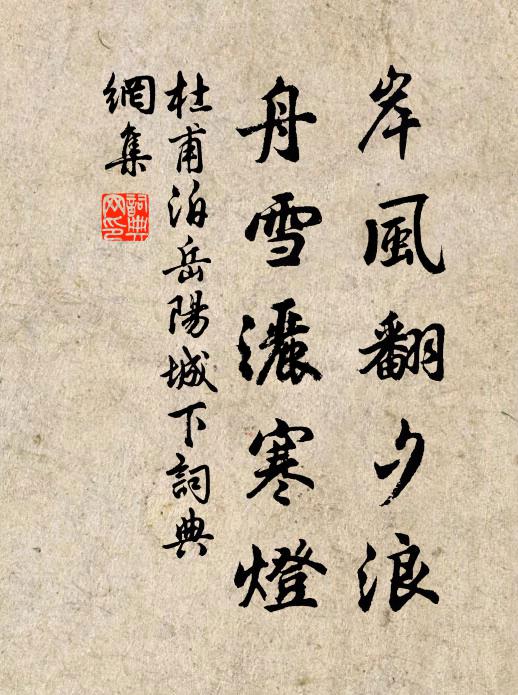 岸風翻夕浪
舟雪灑寒燈
杜甫泊岳陽城下詞典
網集
詞典
网印